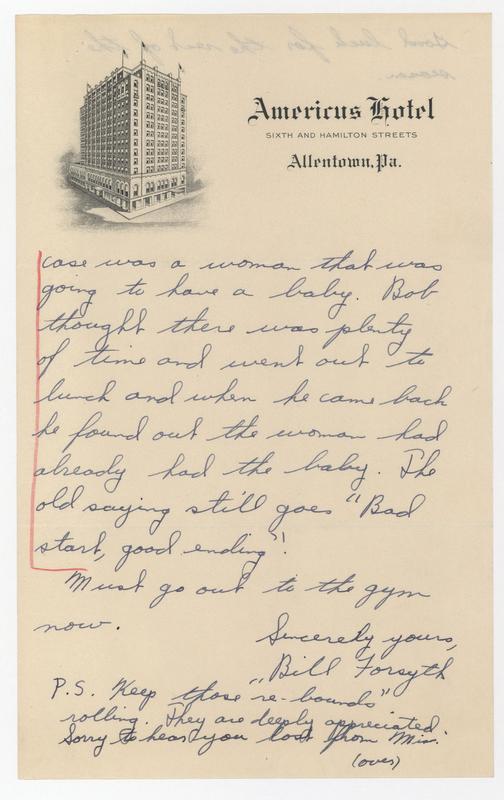 Americus Hotel
SIXTH AND HAMILTON STREETS
Allentown, Pa.
case was a woman that was
going to have a baby. Bob
thought there was plenty
of time and went out to
lunch and when he came back
he found out the woman had
already had the baby. The
old saying still goes "Bad
start, good ending"!
Must go out to the gym
now.
Sincerely yours,
"Bill Forsyth
P.S. Keep those "re-bounds"
rolling. They are deeply appreciated.
Sorry to hear you lost from Min.
(over)